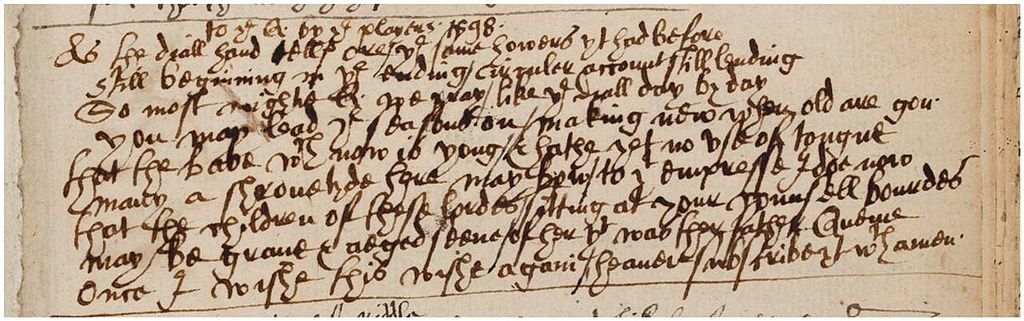 to ye Q. by ye players. 1598.
As the diall hand tells ore ye same howers yt had before
still beginning in ye ending / circuler account still lending
So most mightie Q. we pray / like ye diall day by day
you may lead ye seasons on / making new when old are gon.
that the babe wch now is yong / & hathe yet no use of tongue
many a shrovetyde here may bow / to yt empresse I doe now
that the children of these lordes / sitting at your counsell bourdes
may be grave & aeged seene / of her yt was ther fathers Quene
Once I wishe this wishe again / heaven subscribe yt wth amen.